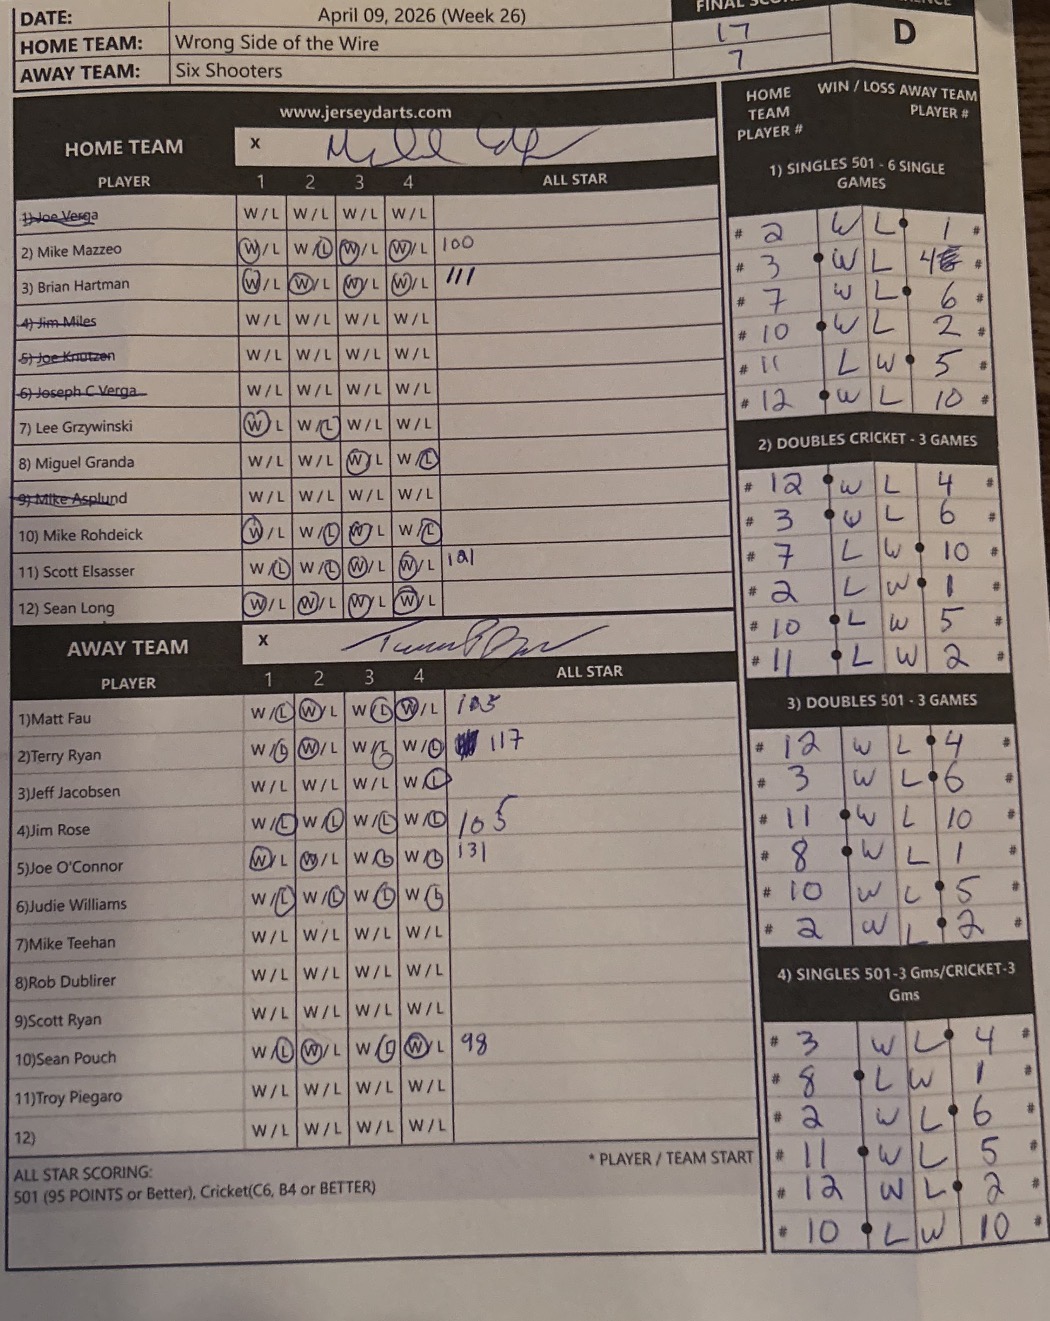 FINAL SCORE
DATE: April 09, 2026 (Week 26)
HOME TEAM: Wrong Side of the Wire 17 D
AWAY TEAM: Six Shooters 7
www.jerseydarts.com
HOME TEAM X
PLAYER 1 2 3 4 ALL STAR
1) Joe Verga W/L W/L W/L W/L
2) Mike Mazzeo W/L W/L W/L W/L 100
3) Brian Hartman W/L W/L W/L W/L 111
4) Jim Miles W/L W/L W/L W/L
5) Joe Knutzen W/L W/L W/L W/L
6) Joseph C Verga W/L W/L W/L W/L
7) Lee Grzywinski W L W L W/L W/L
8) Miguel Granda W/L W/L W L W L
9) Mike Asplund W/L W/L W/L W/L
10) Mike Rohdeick W/L W/L W L W/L
11) Scott Elsasser W/L W/L W/L W/L 121
12) Sean Long W/L W/L W/L W/L
AWAY TEAM X
PLAYER 1 2 3 4 ALL STAR
1)Matt Fau W/L W/L W L W/L 105
2)Terry Ryan W/L W/L W/L W/L 117
3)Jeff Jacobsen W/L W/L W/L W L
4)Jim Rose W/L W/L W/L W/L 105
5)Joe O'Connor W/L W/L W L W L 131
6)Judie Williams W/L W/L W L W L
7)Mike Teehan W/L W/L W/L W/L
8)Rob Dublirer W/L W/L W/L W/L
9)Scott Ryan W/L W/L W/L W/L
10)Sean Pouch W/L W/L W L W L 98
11)Troy Piegaro W/L W/L W/L W/L
12) W/L W/L W/L W/L
* PLAYER / TEAM START
ALL STAR SCORING:
501 (95 POINTS or Better), Cricket(C6, B4 or BETTER)
HOME TEAM PLAYER # WIN / LOSS AWAY TEAM PLAYER #
1) SINGLES 501 - 6 SINGLE
GAMES
# 2 W L 1 #
# 3 W L 4 #
# 7 W L 6 #
# 10 W L 2 #
# 11 L W 5 #
# 12 W L 10 #
2) DOUBLES CRICKET - 3 GAMES
# 12 W L 4 #
# 3 W L 6 #
# 7 L W 10 #
# 2 L W 1 #
# 10 L W 5 #
# 11 L W 2 #
3) DOUBLES 501 - 3 GAMES
# 12 W L 4 #
# 3 W L 6 #
# 11 W L 10 #
# 8 W L 1 #
# 10 W L 5 #
# 2 W L 2 #
4) SINGLES 501-3 Gms/CRICKET-3
Gms
# 3 W L 4 #
# 8 L W 1 #
# 2 W L 6 #
# 11 W L 5 #
# 12 W L 2 #
# 10 L W 10 #